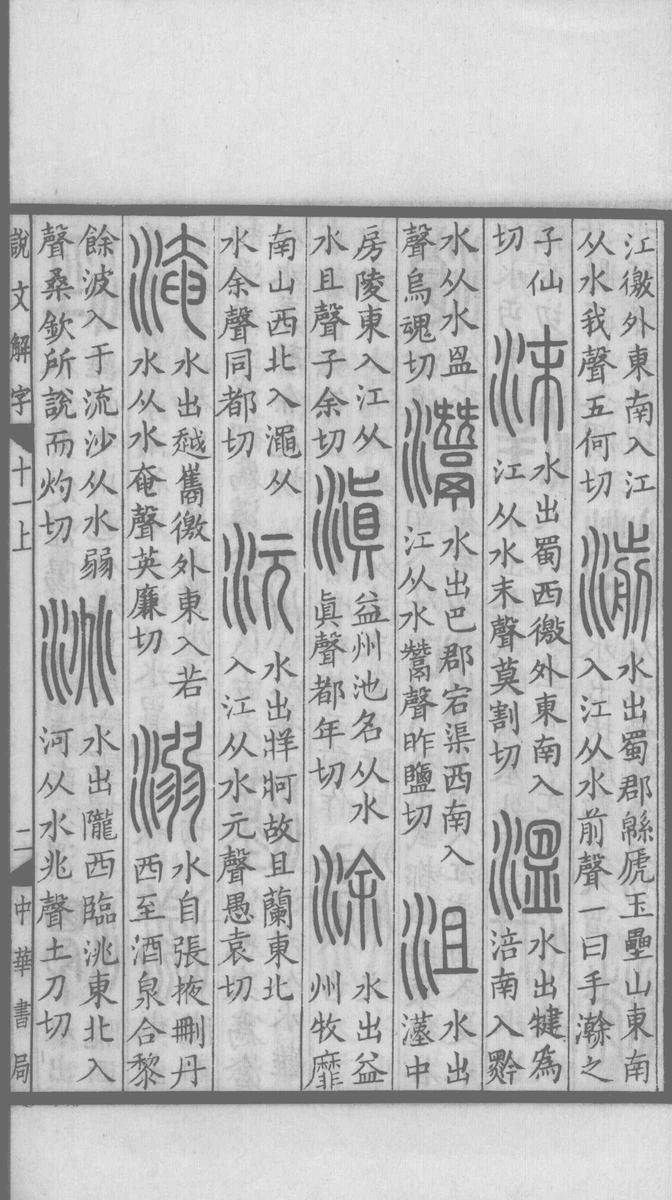 江徼外東南入江
从水我聲五何切
湔
水出蜀郡緜虒玉壘山東南
入江从水前聲一曰手瀚之
子仙
切
沬
水出蜀西徼外東南入
江从水末聲莫割切
溫
水出犍爲
涪南入黔
水从水𥁕
聲烏魂切
灊
水出巴郡宕渠西南入
江从水鬵聲昨鹽切
沮
水出
漢中
房陵東入江从
水且聲子余切
滇
益州池名从水
眞聲都年切
涂
水出益
州牧靡
南山西北入澠从
水余聲同都切
沅
水出牂牁故且蘭東北
入江从水元聲愚袁切
淹
水出越巂徼外東入若
水从水奄聲英廉切
溺
水自張掖刪丹
西至酒泉合黎
餘波入于流沙从水弱
聲桑欽所說而灼切
洮
水出隴西臨洮東北入
河从水兆聲土刀切
說文解字
十一上
二
中華書局